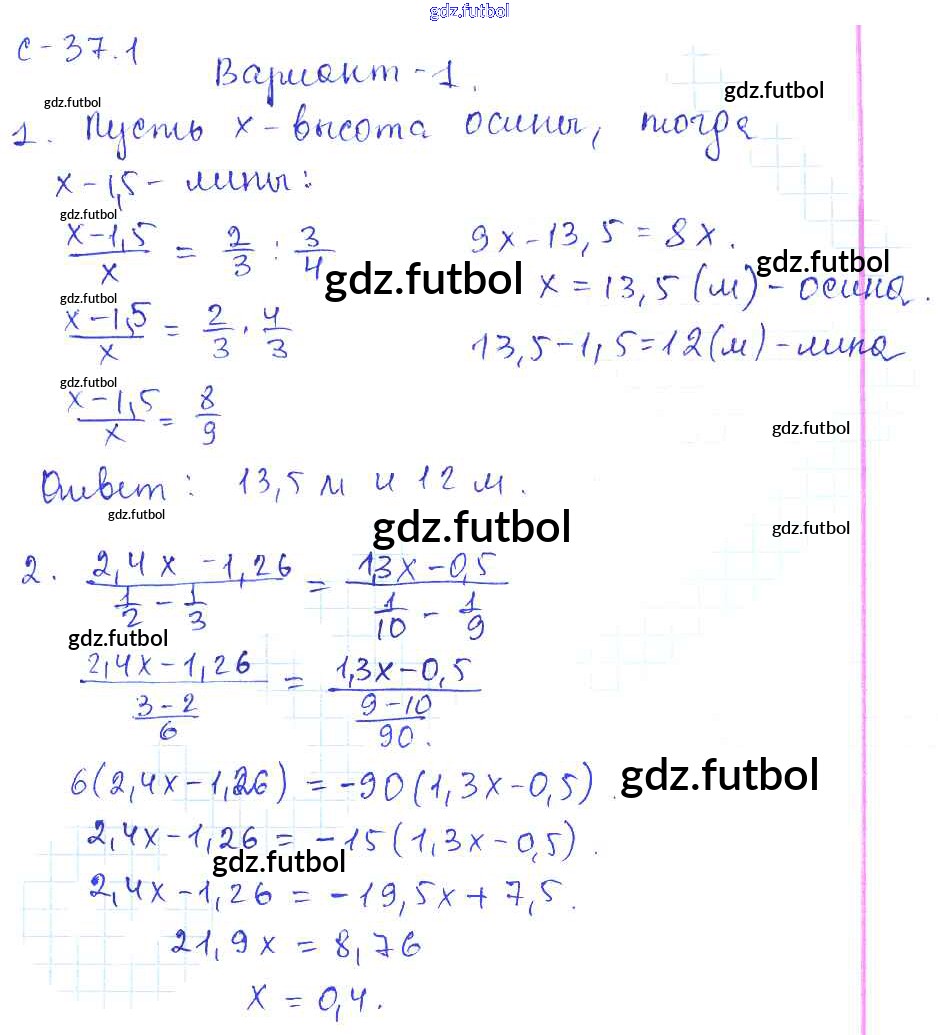 gdz.futbol
С-37.1
Вариант-1.
gdz.futbol
gdz.futbol
1. Пусть x-высота осины, тогда
x-1,5- липы:
gdz.futbol
(x-1,5)/x = 2/3 : 3/4
9x-13,5=8x.
gdz.futbol
gdz.futbol
x=13,5(м)-осина.
gdz.futbol
(x-1,5)/x = 2/3 · 4/3
13,5-1,5=12(м)-липа
gdz.futbol
(x-1,5)/x = 8/9
gdz.futbol
Ответ: 13,5 м и 12 м.
gdz.futbol
gdz.futbol
gdz.futbol
2. (2,4x-1,26)/(1/2 - 1/3) = (1,3x-0,5)/(1/10 - 1/9)
gdz.futbol
(2,4x-1,26)/((3-2)/6) = (1,3x-0,5)/((9-10)/90).
6(2,4x-1,26)=-90(1,3x-0,5).
gdz.futbol
2,4x-1,26=-15(1,3x-0,5).
gdz.futbol
2,4x-1,26=-19,5x+7,5.
21,9x=8,76
x=0,4.